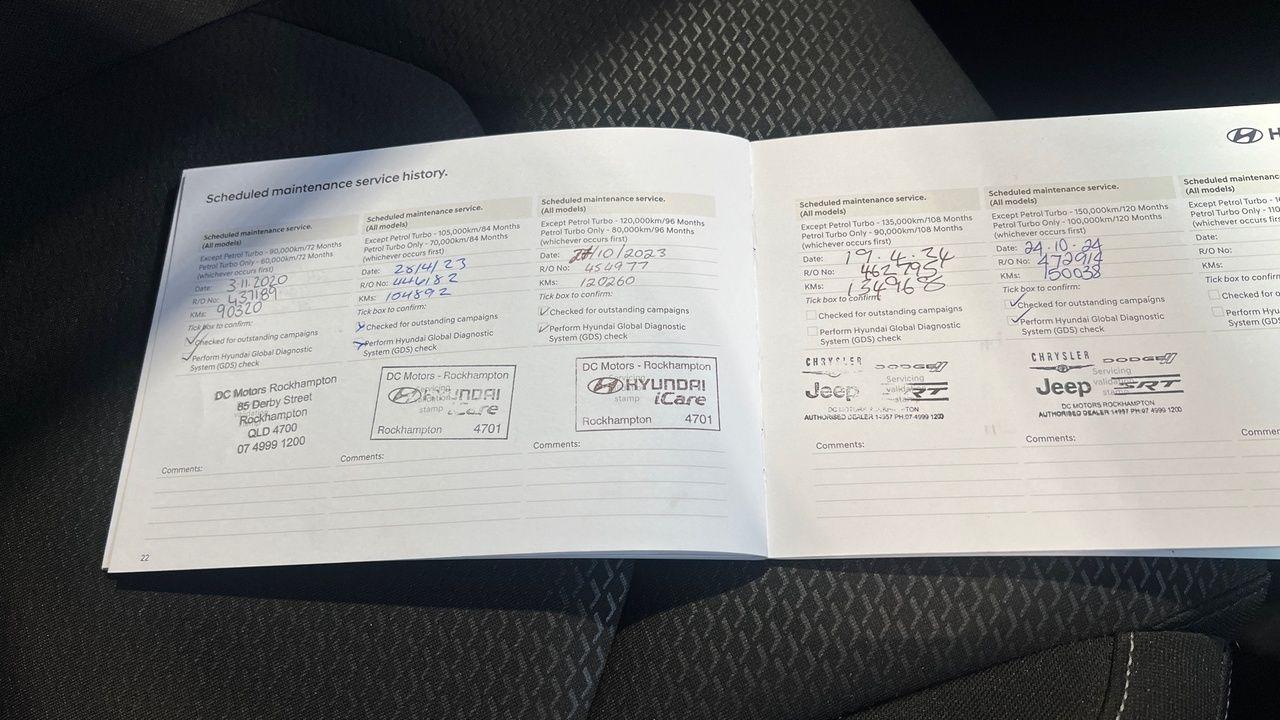 Scheduled maintenance service history.
Scheduled maintenance service.
(All models)
Except Petrol Turbo - 90,000km/72 Months
Petrol Turbo Only - 60,000km/72 Months
(whichever occurs first)
Date: 3.11.2020
R/O No: 437189
KMs: 90320
Tick box to confirm:
Checked for outstanding campaigns
Perform Hyundai Global Diagnostic
System (GDS) check
DC Motors Rockhampton
85 Derby Street
Rockhampton
QLD 4700
07 4999 1200
Comments:
Scheduled maintenance service.
(All models)
Except Petrol Turbo - 105,000km/84 Months
Petrol Turbo Only - 70,000km/84 Months
(whichever occurs first)
Date: 28/4/23
R/O No: 446182
KMs: 104892
Tick box to confirm:
Checked for outstanding campaigns
Perform Hyundai Global Diagnostic
System (GDS) check
DC Motors - Rockhampton
HYUNDAI
iCare
stamp
Rockhampton 4701
Comments:
Scheduled maintenance service.
(All models)
Except Petrol Turbo - 120,000km/96 Months
Petrol Turbo Only - 80,000km/96 Months
(whichever occurs first)
Date: /10/2023
R/O No: 454977
KMs: 120260
Tick box to confirm:
Checked for outstanding campaigns
Perform Hyundai Global Diagnostic
System (GDS) check
DC Motors - Rockhampton
HYUNDAI
stamp iCare
Rockhampton 4701
Comments:
22
H
Scheduled maintenance service.
(All models)
Except Petrol Turbo - 135,000km/108 Months
Petrol Turbo Only - 90,000km/108 Months
(whichever occurs first)
Date: 19.4.24
R/O No: 462795
KMs: 134968
Tick box to confirm:
Checked for outstanding campaigns
Perform Hyundai Global Diagnostic
System (GDS) check
CHRYSLER DODGE
Servicing
Jeep SRT
AUTHORISED DEALER 14957 PH:07 4999 1200
Comments:
Scheduled maintenance service.
(All models)
Except Petrol Turbo - 150,000km/120 Months
Petrol Turbo Only - 100,000km/120 Months
(whichever occurs first)
Date: 24.10.24
R/O No: 472914
KMs: 150038
Tick box to confirm:
Checked for outstanding campaigns
Perform Hyundai Global Diagnostic
System (GDS) check
CHRYSLER DODGE
Servicing
Jeep SRT
DC MOTORS ROCKHAMPTON
AUTHORISED DEALER 14957 PH:07 4999 1200
Comments:
Scheduled maintenance
(All models)
Except Petrol Turbo - 1
Petrol Turbo Only - 11
(whichever occurs first)
Date:
R/O No:
KMs:
Tick box to confirm:
Checked for o
Perform Hyu
System (GDS
Comm